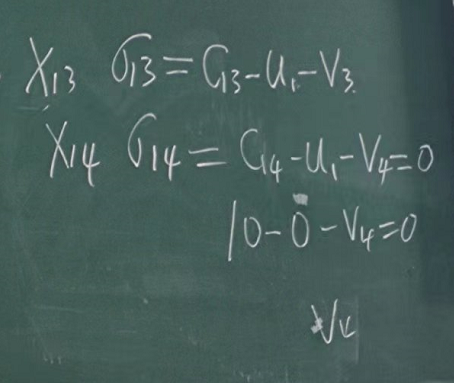 X₁₃ σ₁₃=C₁₃-u₁-V₃
X₁₄ σ₁₄=C₁₄-u₁-V₄=0
10-0-V₄=0
V₄